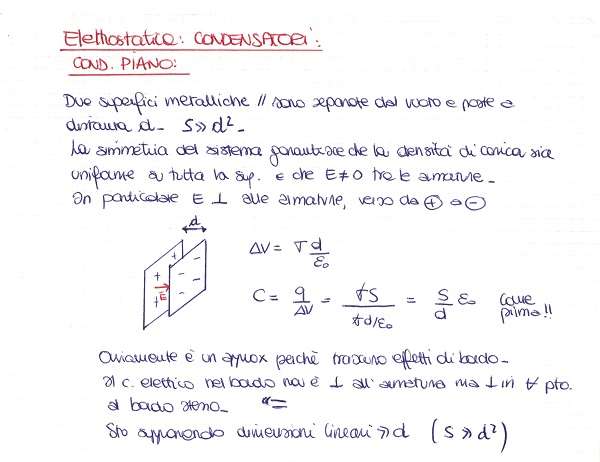 Elettrostatica: CONDENSATORI:
COND. PIANO:
Due superfici metalliche // sono separate dal vuoto e poste a
distanza d_ S≫d²_
La simmetria del sistema garantisce che la densità di carica sia
uniforme su tutta la sup. e che E≠0 tra le armature_
In particolare E ⊥ alle armature, verso da ⊕ a ⊖
d
ΔV = σ d/ε₀
+ + + + - - - - -
E
C = q/ΔV = σS/(σd/ε₀) = S/d ε₀ come
prima!!
Ovviamente è un approx perchè trascuro effetti di bordo_
Il c. elettrico nel bordo non è ⊥ all'armatura ma ⊥ in ∀ pto.
al bordo stesso_
Sto supponendo dimensioni lineari ≫ d (S ≫ d²)